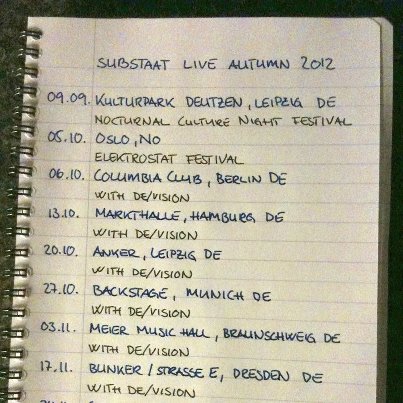 SUBSTAAT LIVE AUTUMN 2012
09.09. KULTURPARK DEUTZEN, LEIPZIG DE
NOCTURNAL CULTURE NIGHT FESTIVAL
05.10. OSLO, NO
ELEKTROSTAT FESTIVAL
06.10. COLUMBIA CLUB, BERLIN DE
WITH DE/VISION
13.10. MARKTHALLE, HAMBURG DE
WITH DE/VISION
20.10. ANKER, LEIPZIG DE
WITH DE/VISION
27.10. BACKSTAGE, MUNICH DE
WITH DE/VISION
03.11. MEIER MUSIC HALL, BRAUNSCHWEIG DE
WITH DE/VISION
17.11. BUNKER / STRASSE E, DRESDEN DE
WITH DE/VISION